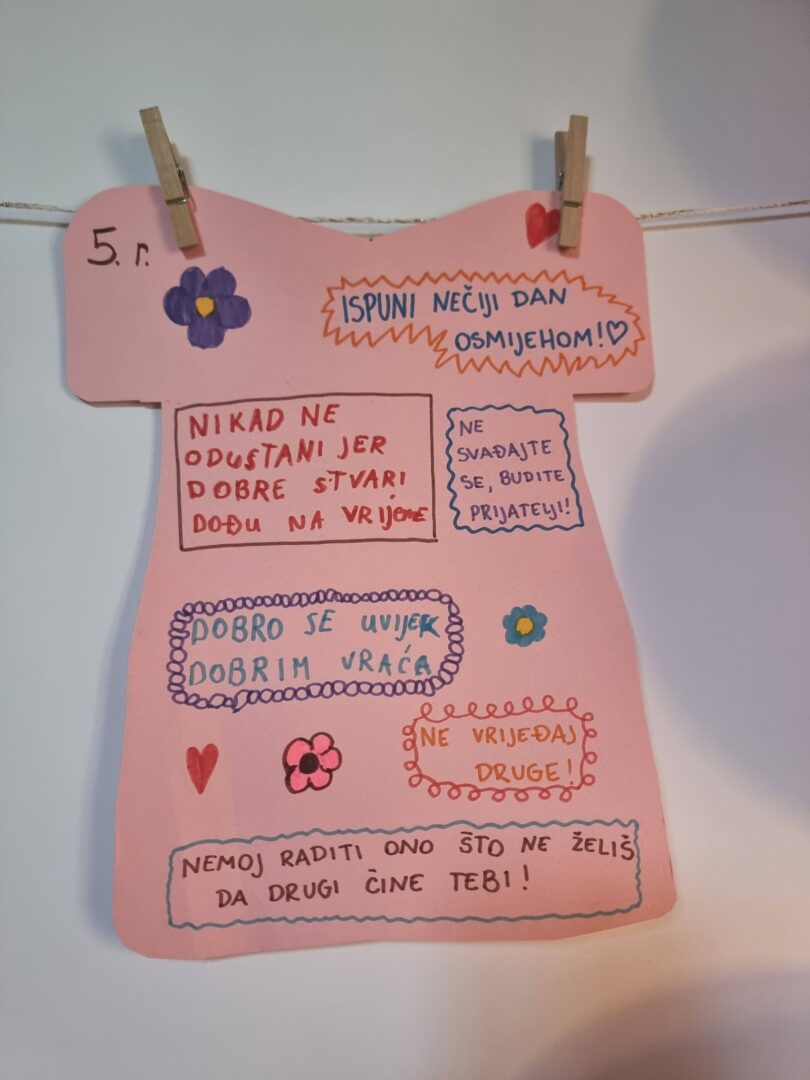 5. r.
ISPUNI NEČIJI DAN
OSMIJEHOM!
NIKAD NE
ODUSTANI JER
DOBRE STVARI
DOĐU NA VRIJEME
NE
SVAĐAJTE
SE, BUDITE
PRIJATELJI!
DOBRO SE UVIJEK
DOBRIM VRAĆA
NE VRIJEĐAJ
DRUGE!
NEMOJ RADITI ONO ŠTO NE ŽELIŠ
DA DRUGI ČINE TEBI!